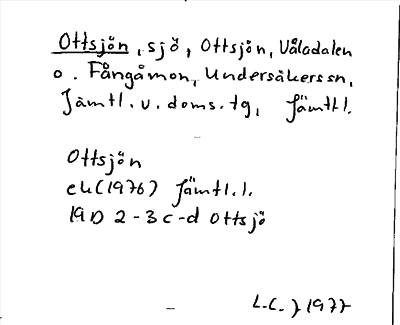 Ottsjön, sjö, Ottsjön, Vålådalen
o. Fångåmon, Undersåkers sn,
Jämtl. v. doms. tg, Jämtl.
Ottsjön
ek (1976) Jämtl. l.
19D 2-3 c-d Ottsjö
L.C. } 1977